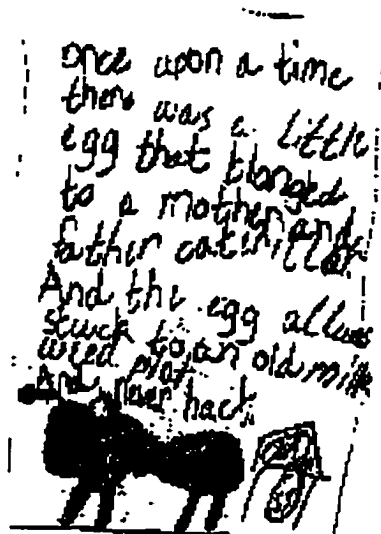 once upon a time
there was a little
egg that blonged
to a mother and
father caterillar
And the egg allwas
stuck to an old milk
weed plat
And never hach